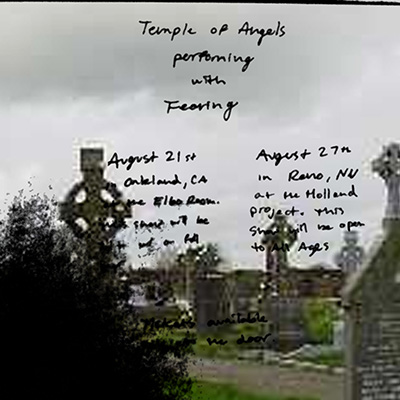 Temple of Angels
performing
with
Fearing
August 21st
in Oakland, CA
the Elbo Room.
show will be
August 27th
in Reno, NV
at the Holland
Project. This
Show will be open
to All Ages
Tickets available
the door